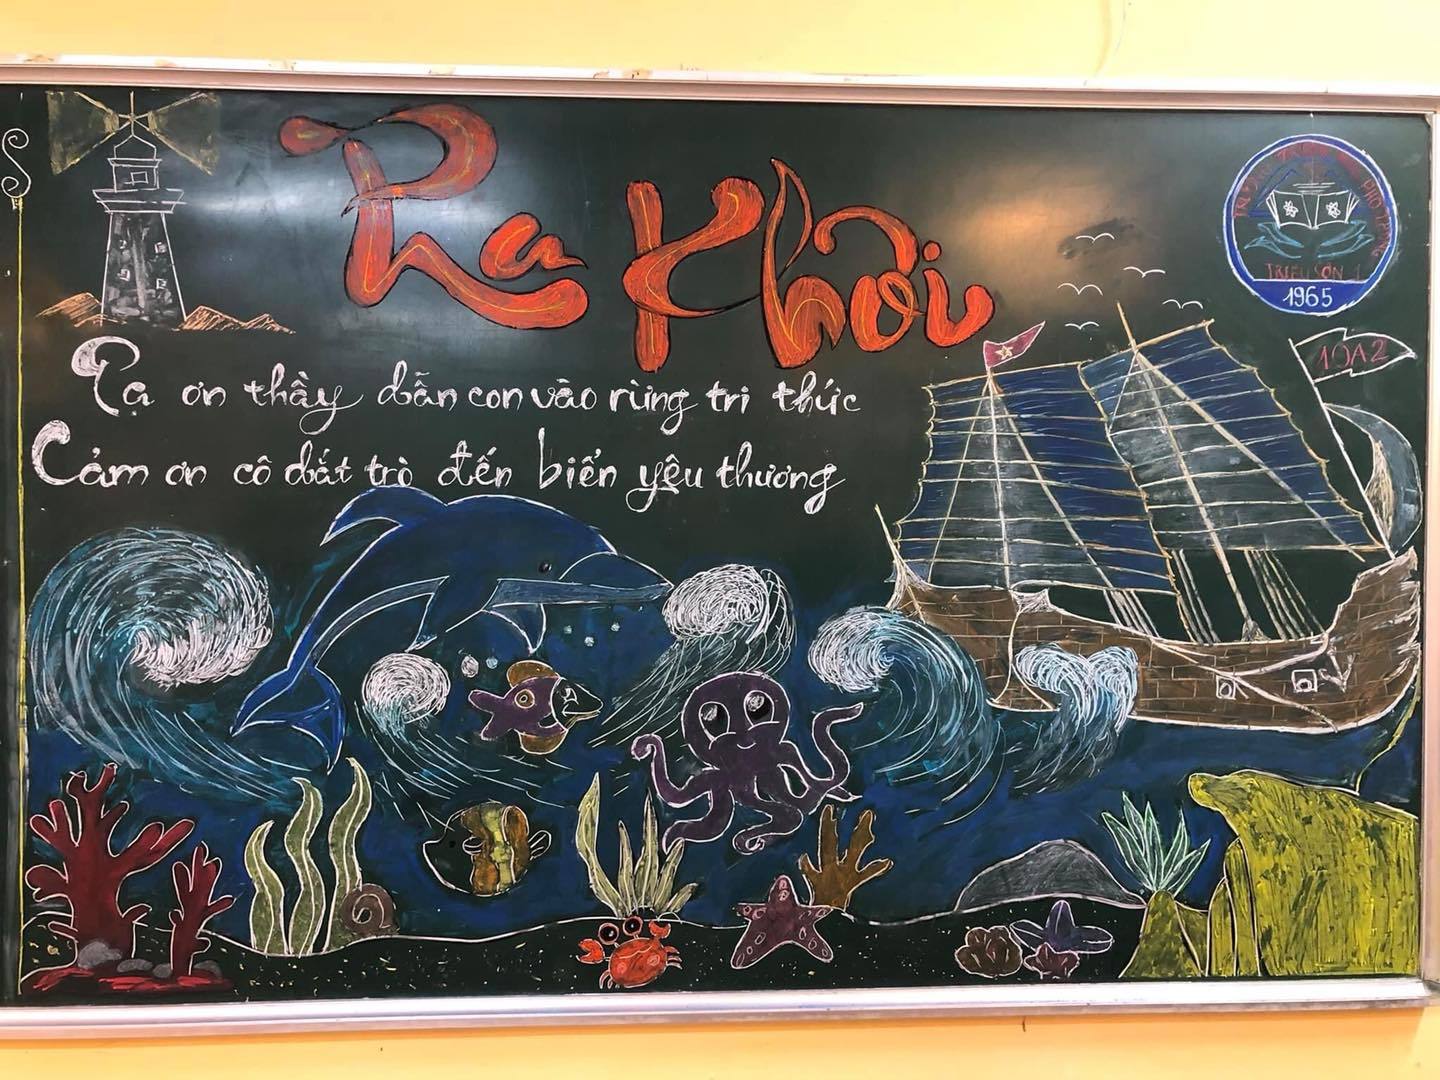 Ra Khơi
Tạ ơn thầy dẫn con vào rừng tri thức
Cảm ơn cô dắt trò đến biển yêu thương
TRƯỜNG TRUNG HỌC PHỔ THÔNG
TRIỆU SƠN 1
1965
10A2